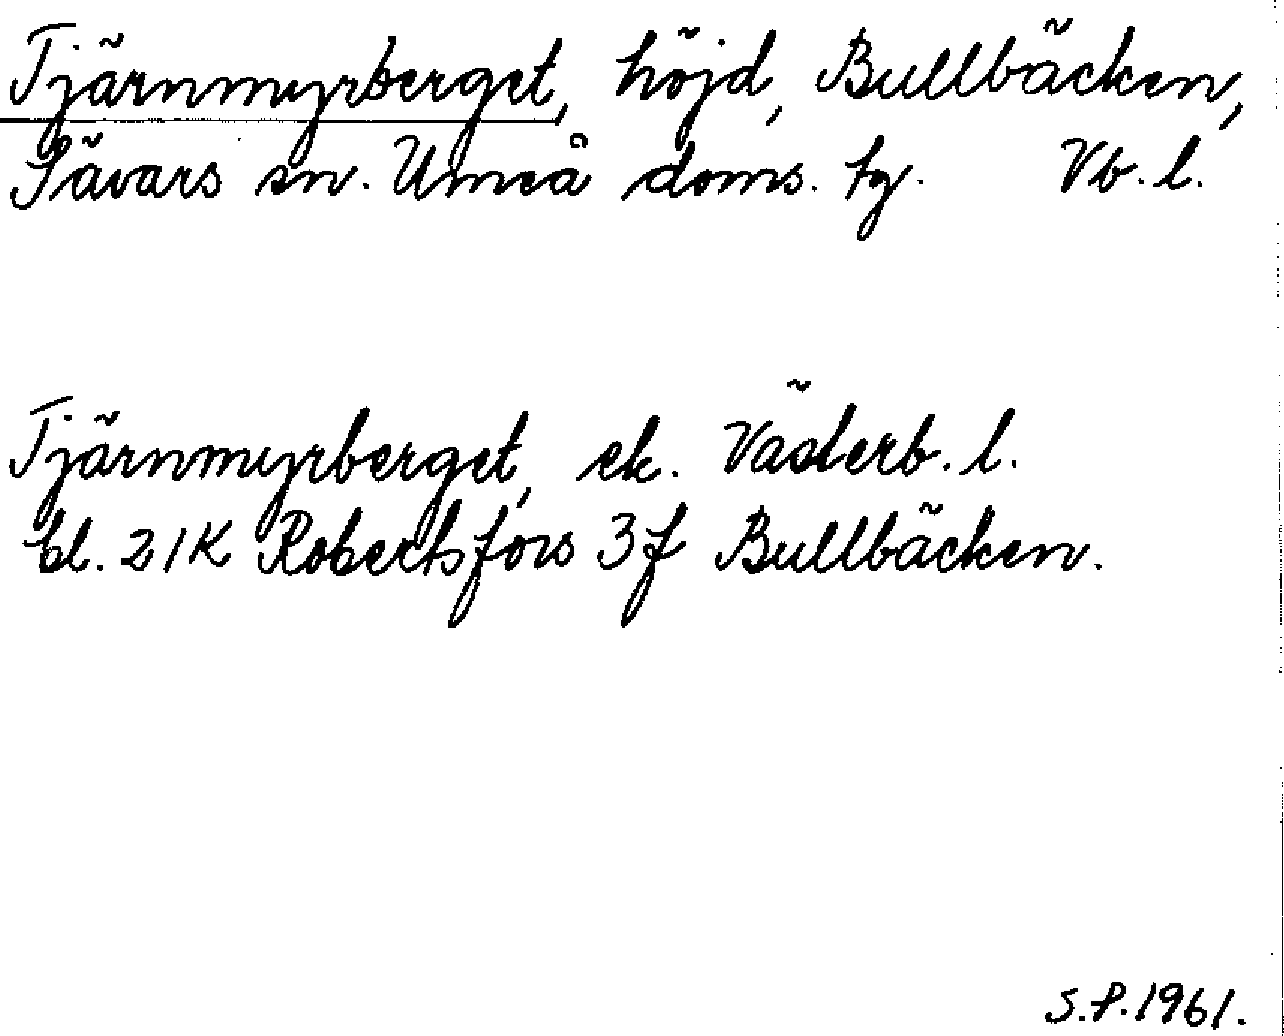 Tjärnmyrberget, höjd, Bullbäcken,
Sävars sn. Umeå doms. tg. Vb. l.
Tjärnmyrberget, ek. Västerb. l.
bl. 21K Robertsfors 3f Bullbäcken.
S.P. 1961.